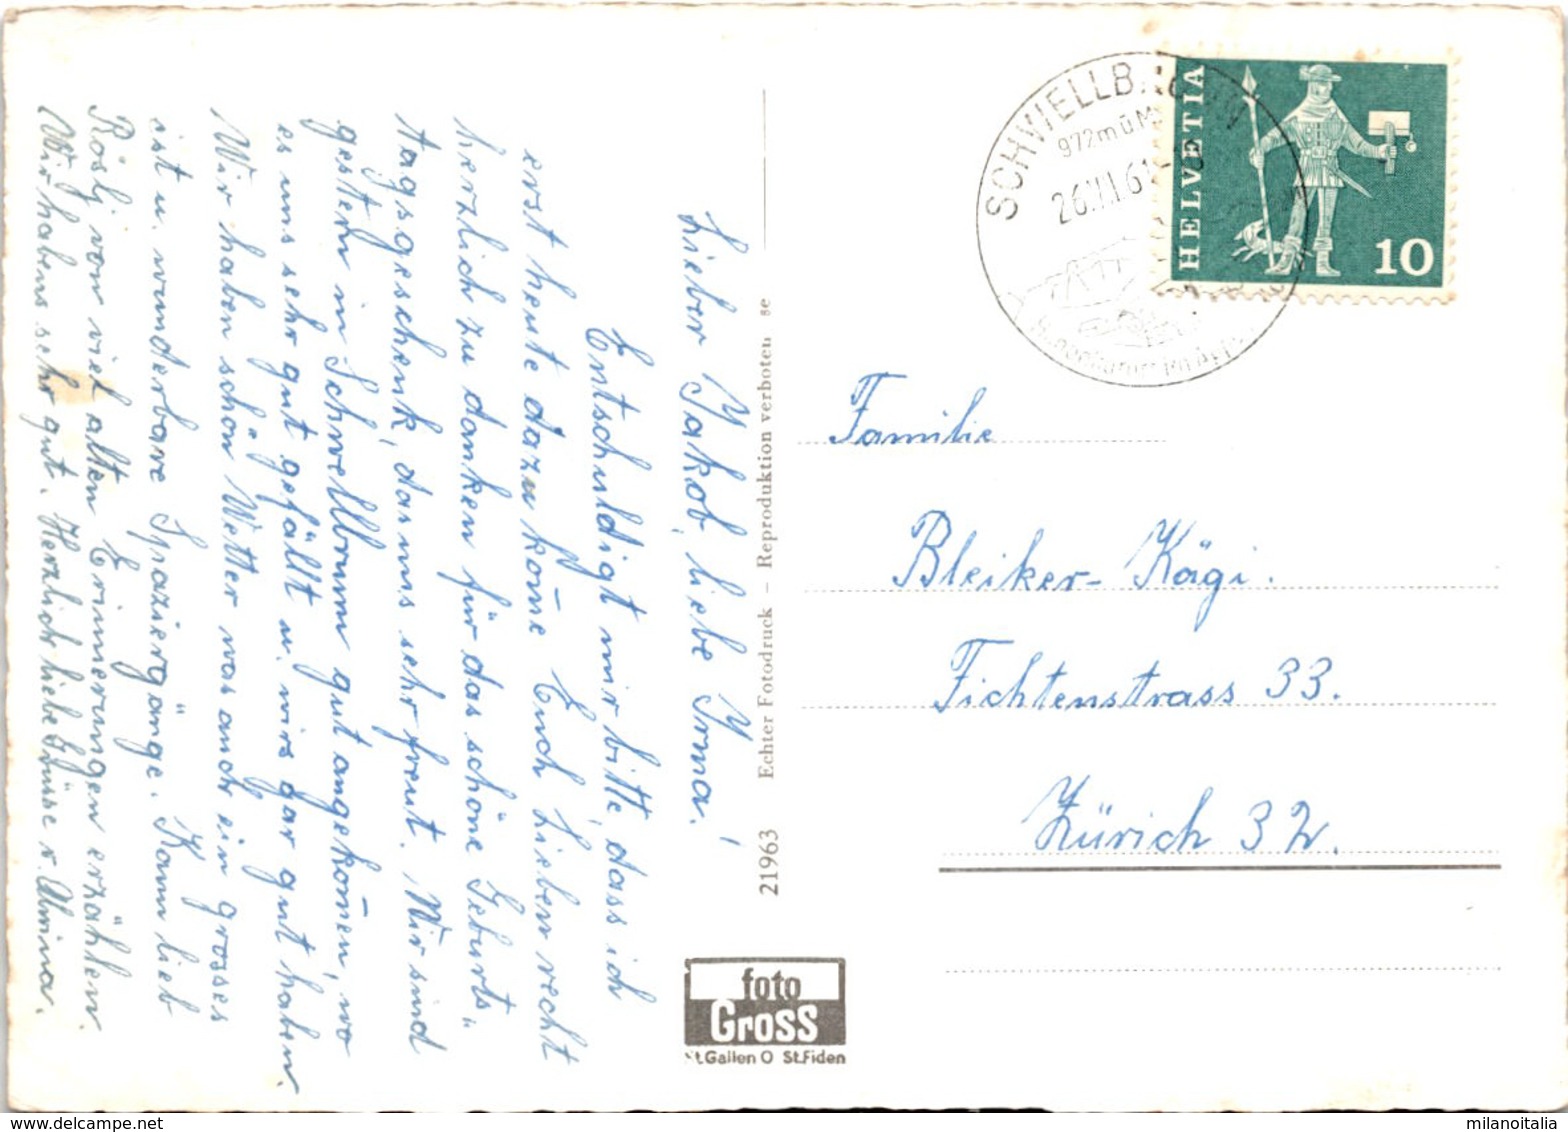 Lieber Jakob, liebe Irma!
Entschuldigt mir bitte, dass ich
erst heute dazu kom̅e Euch, Lieben recht
herzlich zu danken für das schöne Geburts„
tagsgeschenk, das uns sehr freut. Wir sind
gestern in Schwellbrunn gut angekom̅en, wo
es uns sehr gut gefällt u. wirs gar gut haben.
Wir haben schön Wetter was auch ein grosses
ist u. wunderbare Spaziergänge. Kann lieb
Rösly von viel alten Erinnerungen erzählen.
Wir habens sehr gut. Herzlich liebe Grüsse v. Alwina.
21963 Echter Fotodruck – Reproduktion verboten se
foto
Gross
St.Gallen O St.Fiden
972m ü M
26.VII.61
HELVETIA
10
Familie
Bleiker-Kägi.
Fichtenstrass 33.
Zürich 32.
www.delcampe.net
milanoitalia